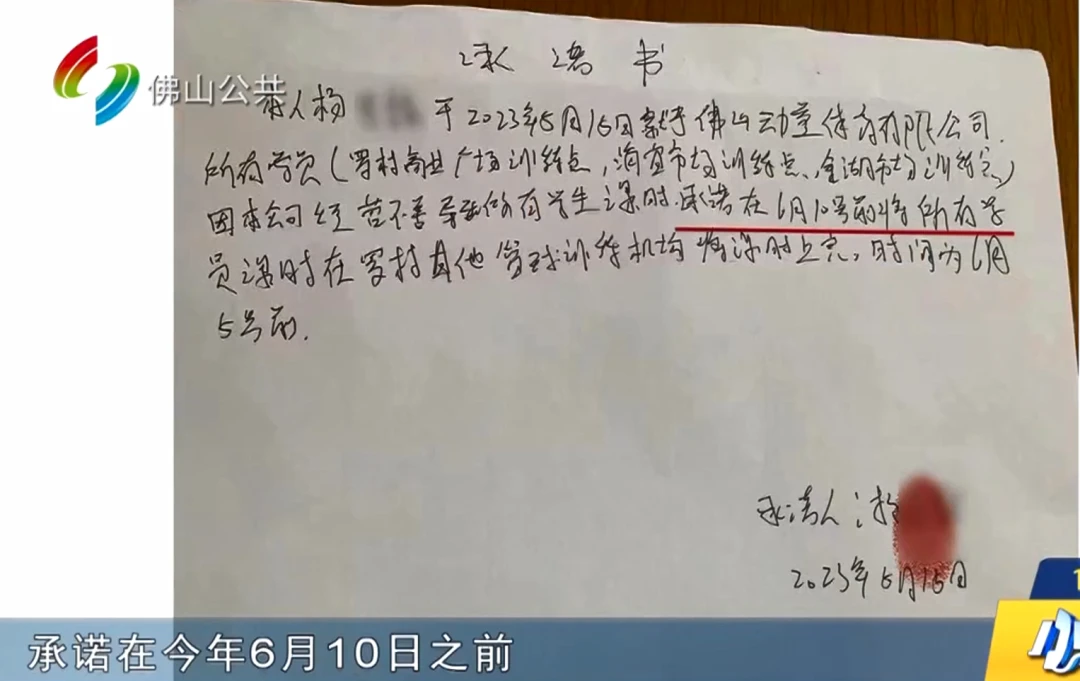 承诺书
佛山公共
本人杨 于2023年5月15日就于佛山动童体育有限公司.
所有学员(罗村商业广场训练点,海宜市场训练点、金湖市场训练点)
因本公司经营不善导致所有学生课时.承诺在6月10号前将所有学
员课时在罗村其他篮球训练机构将课时上完,时间为6月
5号前.
承诺人:杨
2023年5月15日
承诺在今年6月10日之前
小